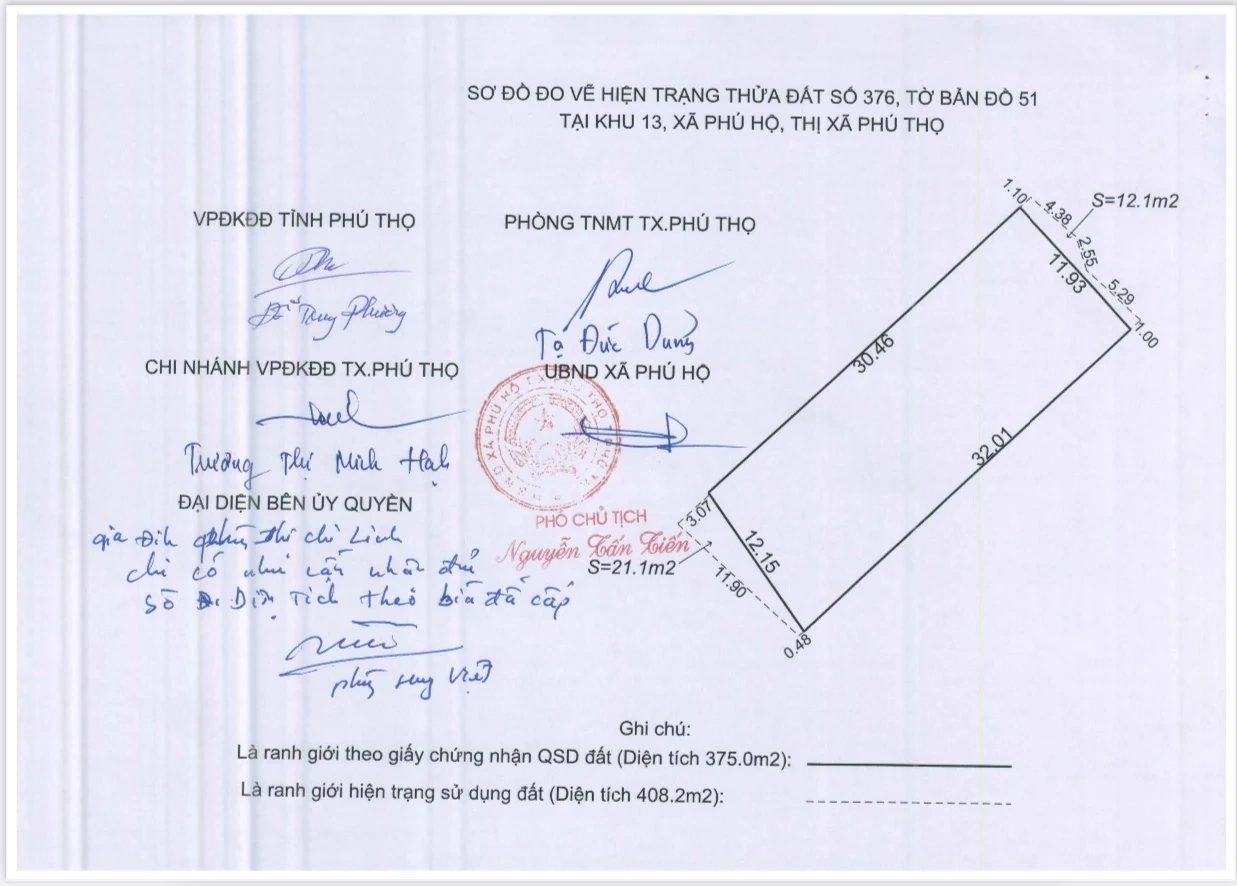 SƠ ĐỒ ĐO VẼ HIỆN TRẠNG THỬA ĐẤT SỐ 376, TỜ BẢN ĐỒ 51
TẠI KHU 13, XÃ PHÚ HỘ, THỊ XÃ PHÚ THỌ
VPĐKĐĐ TỈNH PHÚ THỌ
PHÒNG TNMT TX.PHÚ THỌ
Phương
Tạ Đức Dũng
CHI NHÁNH VPĐKĐĐ TX.PHÚ THỌ
UBND XÃ PHÚ HỘ
Trương Thị Minh Hạnh
XÃ PHÚ HỘ TX PHÚ THỌ
ĐẠI DIỆN BÊN ỦY QUYỀN
PHÓ CHỦ TỊCH
Nguyễn Tấn Tiến
gia Đình phùng thị chi Linh
chỉ có nhu cầu nhận đủ
số Diện Tích theo bìa đã cấp
Việt
1.10
4.38
S=12.1m2
2.55
11.93
5.29
1.00
30.46
32.01
3.07
12.15
S=21.1m2
11.90
0.48
Ghi chú:
Là ranh giới theo giấy chứng nhận QSD đất (Diện tích 375.0m2):
Là ranh giới hiện trạng sử dụng đất (Diện tích 408.2m2):